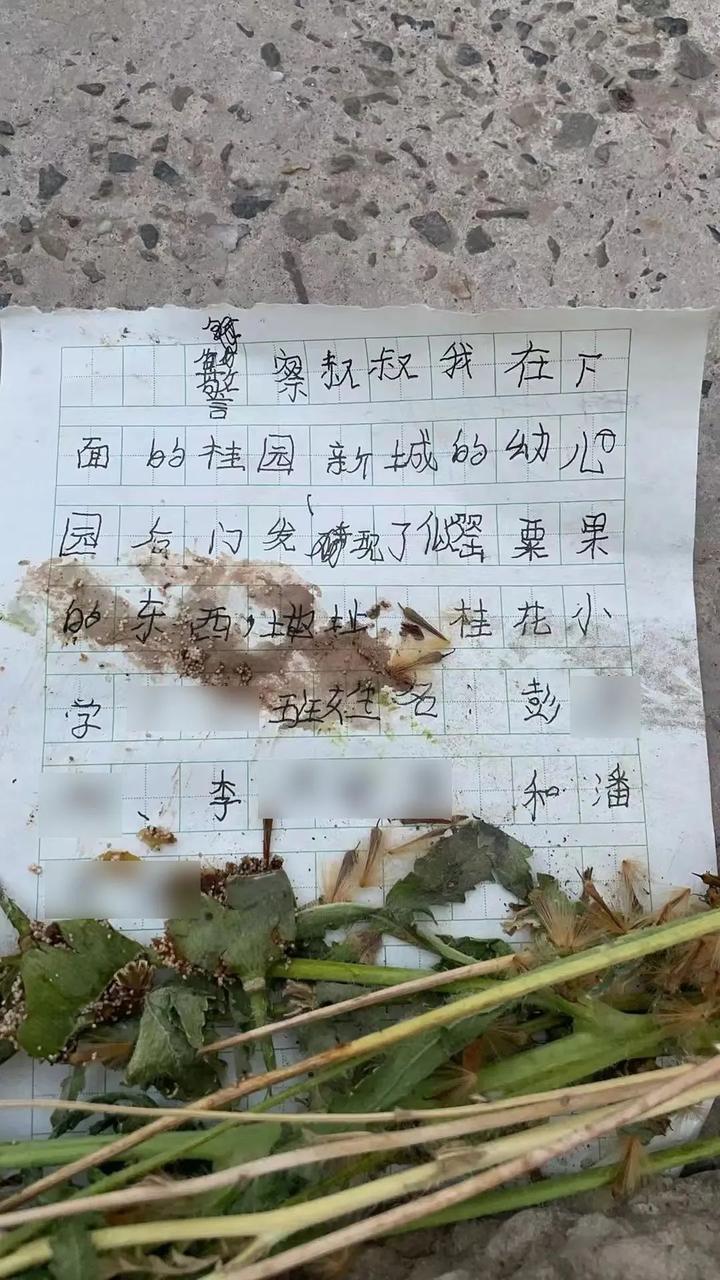 警察叔叔我在下
面的桂园新城的幼儿
园后门发现了似罂粟果
的东西,地址 桂花小
学 班 姓名 彭
、李 和潘